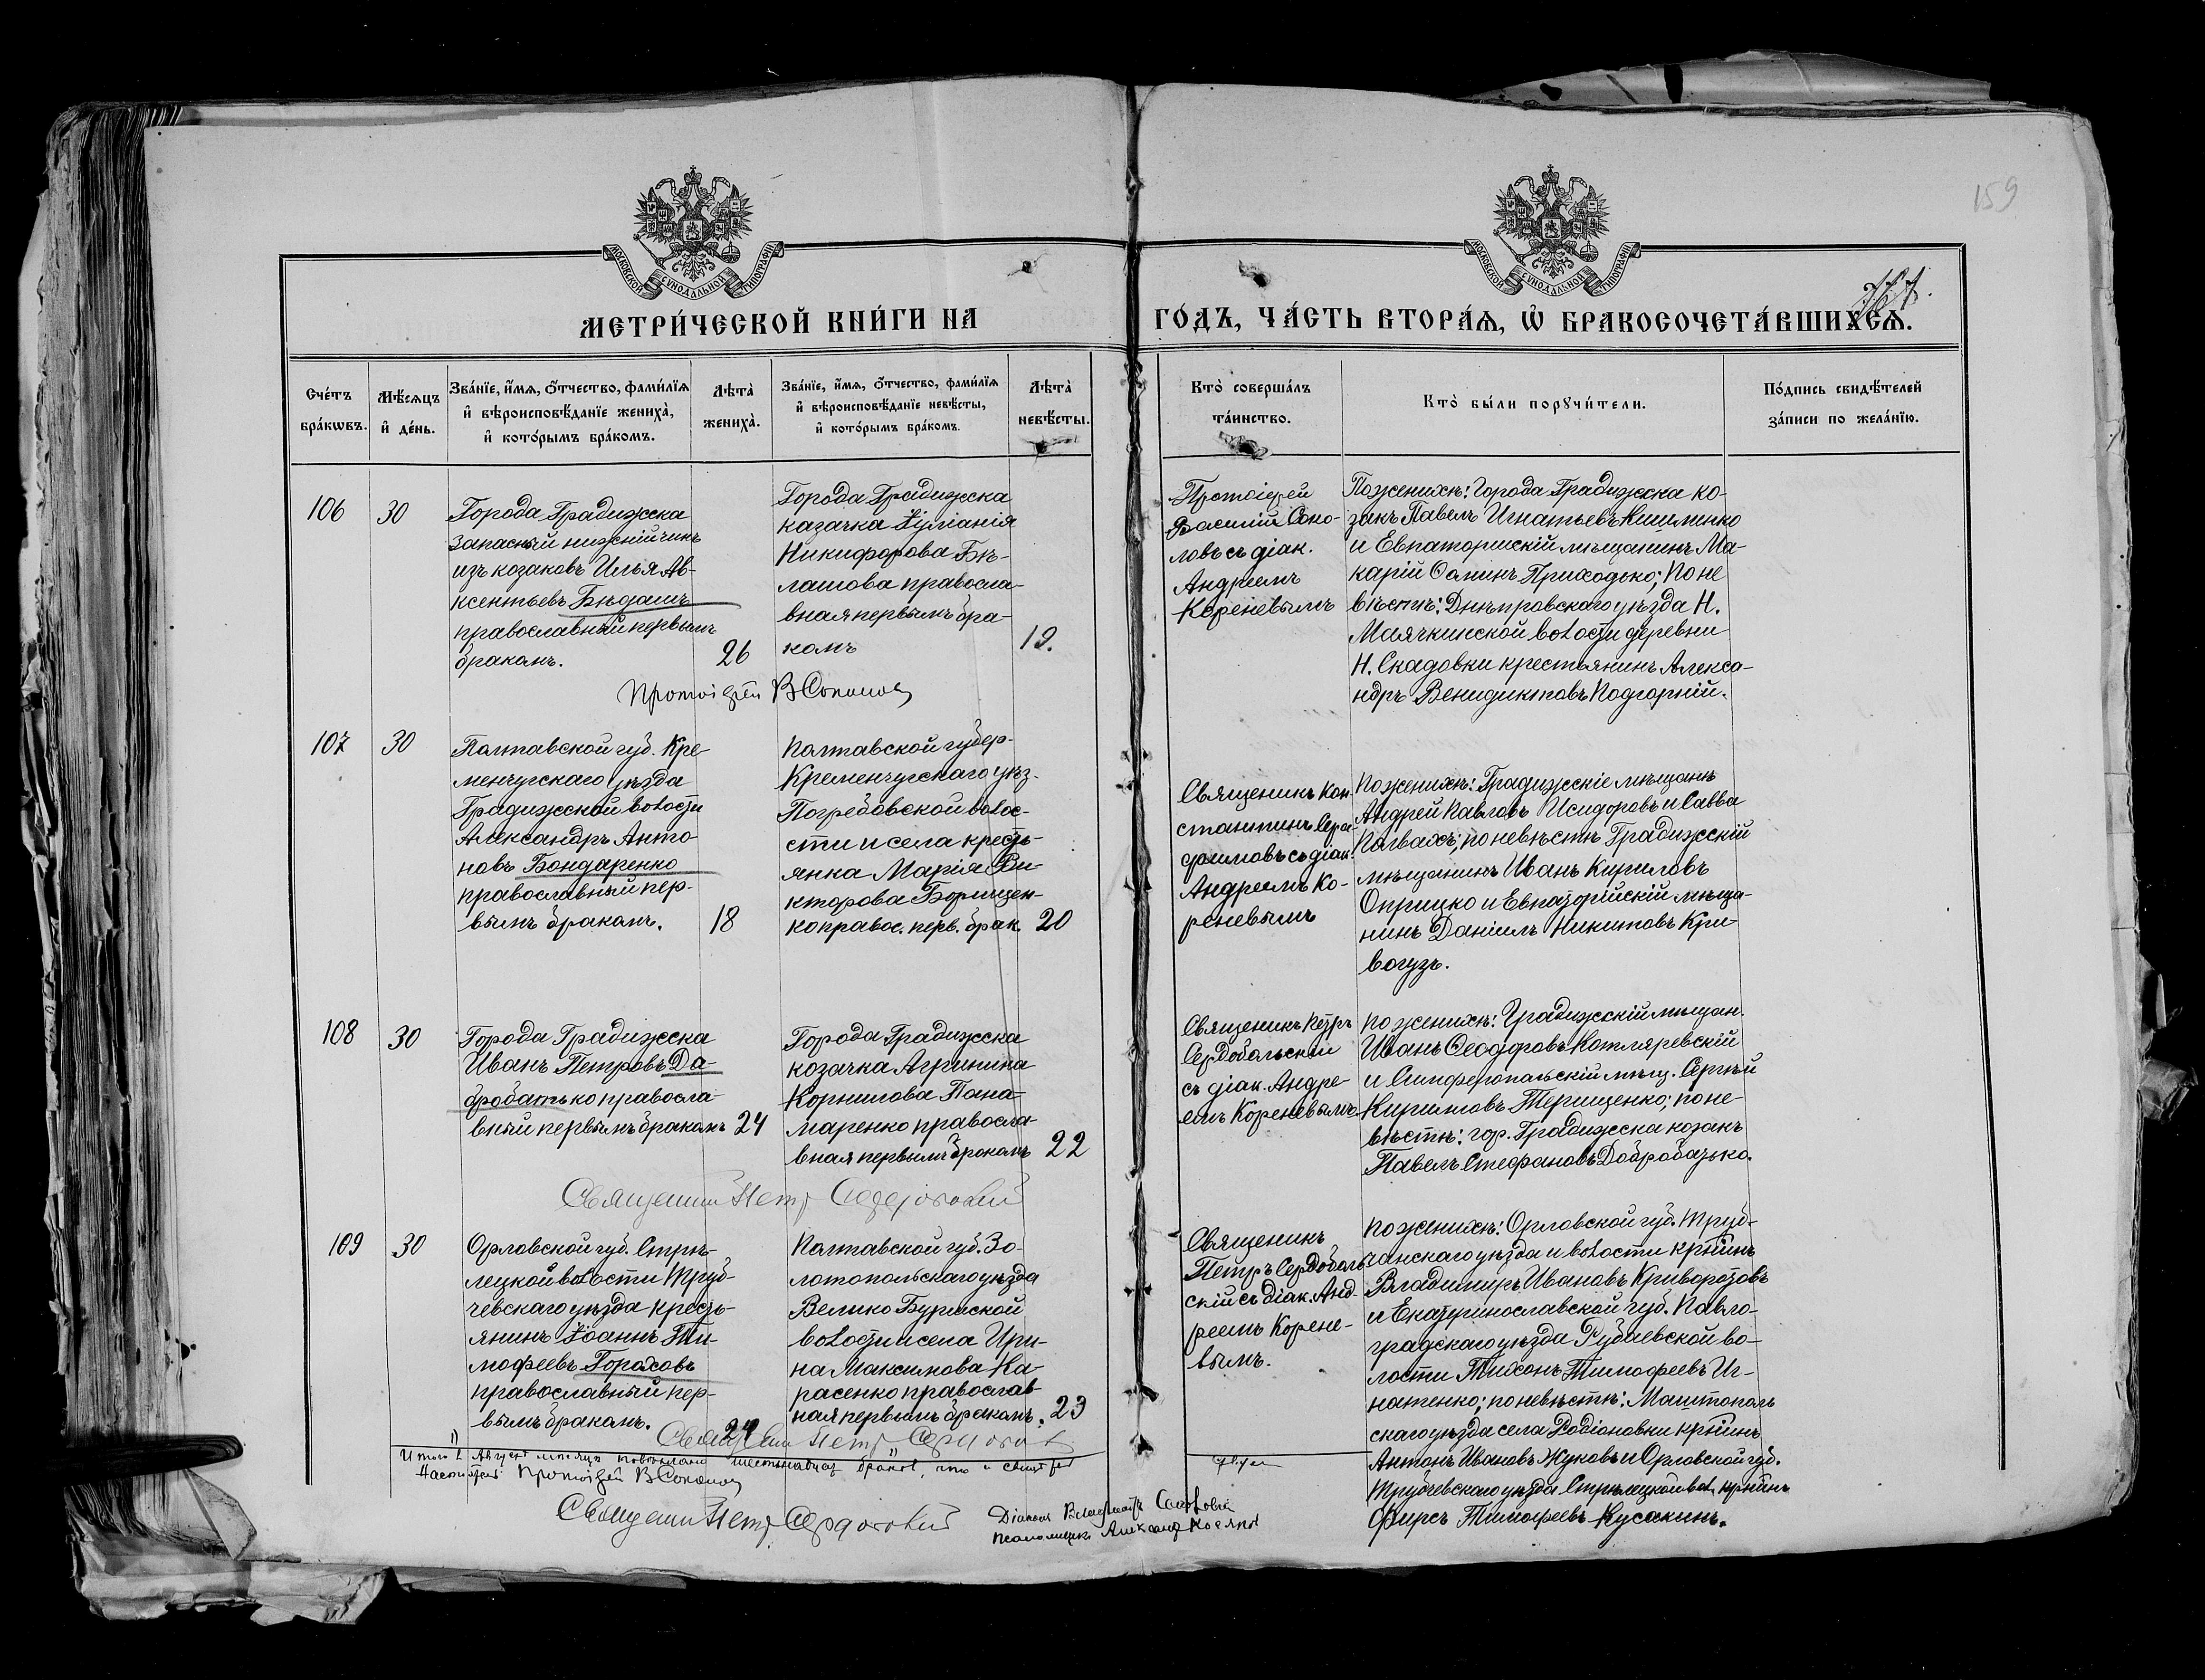 159
МОСКОВСКОЙ СѴНОДАЛЬНОЙ ТИПОГРАФІИ
МОСКОВСКОЙ СѴНОДАЛЬНОЙ ТИПОГРАФІИ
МЕТРИ́ЧЕСКОЙ КНИ́ГИ НА
ГО́ДЪ, ЧА́СТЬ ВТОРА́Ѧ, Ѡ҆ БРАКОСОЧЕТА́ВШИХСѦ.
Сче́тъ
бра́кѡвъ.
Мѣ́сѧцъ
и҆ де́нь.
Зва́нїе, и҆́мѧ, ѻ҆́тчество, фами́лїѧ
и҆ вѣроисповѣ́данїе жениха̀,
и҆ кото́рымъ бра́комъ.
Лѣта̀
жениха̀.
Зва́нїе, и҆́мѧ, ѻ҆́тчество, фами́лїѧ
и҆ вѣроисповѣ́данїе невѣ́сты,
и҆ кото́рымъ бра́комъ.
Лѣта̀
невѣ́сты.
Кто̀ соверша́лъ
та́инство.
Кто̀ бы́ли порꙋчи́тели.
По́дпись свидѣ́телей
за́писи по жела́нїю.
106
30
Города Градижска
запасный нижній чинъ
изъ козаковъ Илья Ав-
ксентьевъ Бѣдашъ
православный первымъ
бракомъ.
26
Города Градижска
казачка Іуліанія
Никифорова Бѣ-
лашова правосла-
вная первымъ бра-
комъ
19.
Протоіерей
Василій Соко-
ловъ съ діак.
Андреемъ
Кореневымъ
По женихѣ: Города Градижска ко-
закъ Павелъ Игнатьевъ
и Евпаторійскій мѣщанинъ Ма-
карій Приходько; По не
вѣстѣ: Днѣпровскаго уѣзда Н.
Маячкинской волости деревни
Н. Скадовки крестьянинъ Алекса-
ндръ Венидиктовъ Подгорній.
Протоіерей В Соколов
107
30
Полтавской губ. Кре-
менчугскаго уѣзда
Градижской волости
Александръ Анто-
новъ Бондаренко
православный пер-
вымъ бракомъ.
18
Полтавской губер-
Кременчугскаго уѣз-
Погребовской волос-
сти и села кресть-
янка Марія Ви-
кторова Борищен-
ко правос. перв. брак.
20
Священикъ Кон-
стантинъ Сера-
фимовъ съ діак.
Андреемъ Ко-
реневымъ
По женихѣ: Градижскіе мѣщанѣ
Андрей Павловъ Исидоровъ и Савва
по невѣстѣ Градижскій
мѣщанинъ Иванъ Кириловъ
Оприцко и Евпаторійскій мѣща-
нинъ Даніилъ Никитовъ Кри-
вогузъ.
108
30
Города Градижска
Иванъ Петровъ До-
бробатько правосла-
вный первымъ бракомъ
24
Города Градижска
козачка Агрипина
Корнилова Пона-
маренко правосла-
вная первымъ бракомъ
22
Священикъ Петръ
Сердобольскій
съ діак. Андре-
емъ Кореневымъ
По женихѣ: Градижскій мѣщан.
Иванъ Ѳеодоровъ Котляревскій
и Симферопольскій мѣщ. Сергѣй
Кириловъ Терещенко; по не-
вѣстѣ: гор. Градижска козакъ
Павелъ Стефановъ Добробатько.
Священик Петр Сердобольский
109
30
Орловской губ. Стрѣ-
лецкой волости Труб-
чевскаго уѣзда кресть-
янинъ Іоаннъ Ти-
мофеевъ Гороховъ
православный пер-
вымъ бракомъ.
24
Полтавской губ. Зо-
лотопольскаго уѣзда
Велико Бурмской
волости и села Ири-
на Максимова Ка-
расенко православ-
ная первымъ бракомъ.
23
Священикъ
Петръ Сердоболь-
скій съ діак. Анд-
реемъ Корене-
вымъ.
По женихѣ: Орловской губ. Труб-
чанскаго уѣзда и волости кр-нинъ
Владимиръ Ивановъ Криворотовъ
и Екатеринославской губ. Павло-
градскаго уѣзда во-
лости Тихонъ Тимофеевъ Иг-
натенко; по невѣстѣ: Мелитополь
скаго уѣзда села Родіоновки кр-нинъ
Антонъ Ивановъ Жуковъ и Орловской губ.
Трубчевскаго уѣзда Стрѣлецкой вол. кр-нинъ
Фирсъ Тимофеевъ Кусакинъ.
Священик Петр Сердобол
Итого въ Августѣ мѣсяцѣ
Настоятель Протоіерей В Соколов
Священик Петр Сердобольский
Діаконъ
Псаломщикъ Александръ